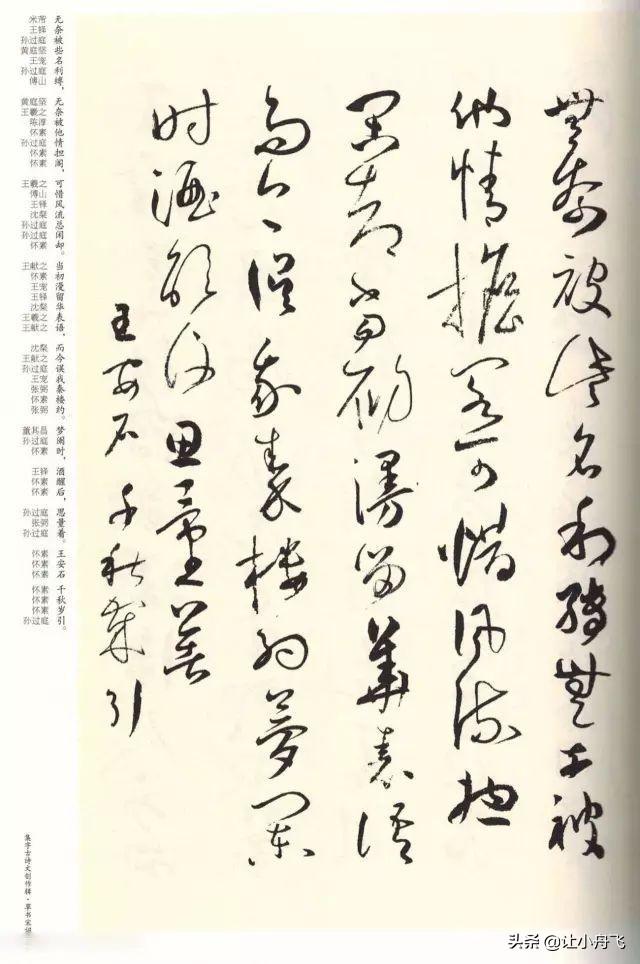 無奈被些名利縛無奈被
他情擔閣可惜風流總
閑却當初漫留華表語
而今誤我秦樓約夢闌
時酒醒後思量著
王安石千秋歲引
米芾 无
王铎 奈
孙过庭 被
黄庭坚 些
王宠 名
孙过庭 利
傅山 缚，
黄庭坚 无
王羲之 奈
陈淳 被
怀素 他
孙过庭 情
怀素 担
怀素 阁，
王羲之 可
傅山 惜
王铎 风
沈粲 流
孙过庭 总
孙过庭 闲
怀素 却。
王献之 当
怀素 初
王宠 漫
王铎 留
沈粲 华
王羲之 表
王献之 语，
沈粲 而
王献之 今
孙过庭 误
王宠 我
张弼 秦
怀素 楼
张弼 约。
董其昌 梦
孙过庭 阑
怀素 时，
王铎 酒
怀素 醒
怀素 后，
孙过庭 思
张弼 量
孙过庭 着。
怀素 王
怀素 安
怀素 石
怀素 千
怀素 秋
怀素 岁
孙过庭 引。
集字古诗文创作辑·草书宋词
头条 @让小舟飞